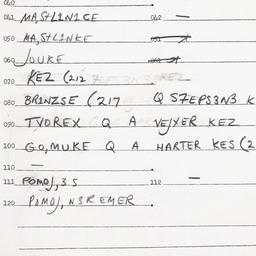 040
042 MA,StLIN1CE 062 —
050 MA,StLINKE
060 JOUKE
070 KEZ (212
080 BRINZSE (217 Q S7EPS3N3 K
090 TVOREX Q A VEJXER KEZ
100 GO,MUKE Q A HARTER KES (2
110 —
111 POMOJ,3 S 112 —
120 POMOJ, N3R EMER